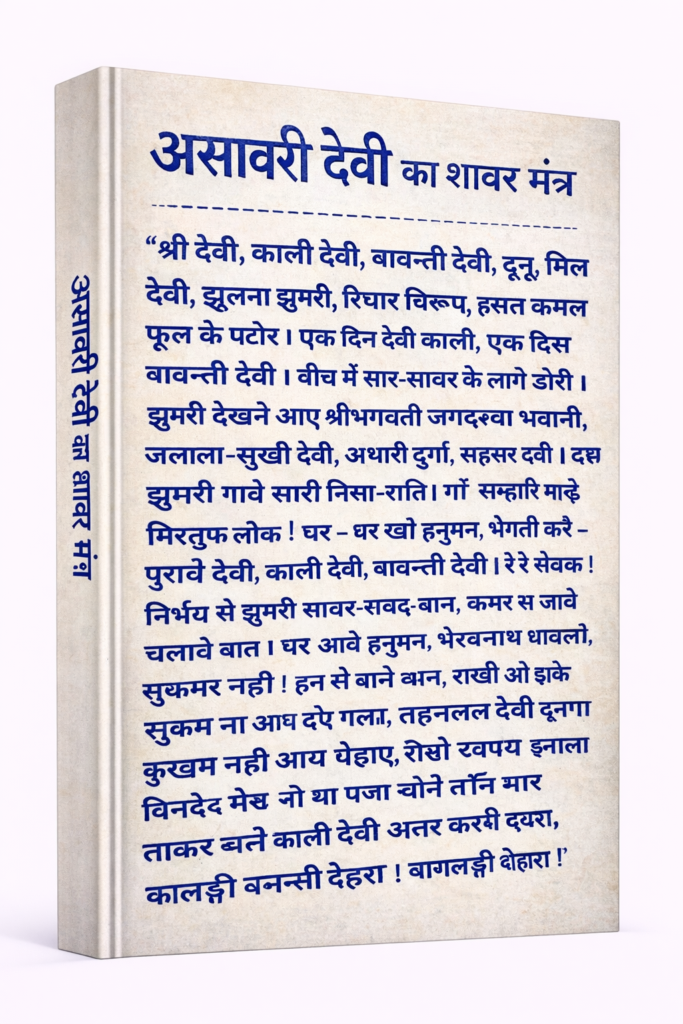 असावरी देवी का शावर मंत्र
असावरी देवी का शावर मंत्र
“श्री देवी, काली देवी, वावन्ती देवी, दूनू, मिल
देवी, झुलना झुमरी, रिघार विरूप, हसत कमल
फूल के पटोर । एक दिन देवी काली, एक दिस
वावन्ती देवी । वीच में सार-सावर के लागे डोरी ।
झुमरी देखने आए श्रीभगवती भवानी,
जलाला-सुखी देवी, अथारी दुर्गा, सहसर दवी ।
झुमरी गावे सारी निसा-राति। गों सम्हारि
मिरतुफ लोक ! घर – धर खो हनुमन, भेगती करै –
पुरावे देवी, काली देवी, वावन्ती देवी । रे रे सेवक !
निर्भय से झुमरी सावर-सवद-बान, कमर स जावे
चलावे बात । घर आवे हनुमन, भेरवनाथ धावलो,
सुकमर नही ! हन से बाने राखी ओ झके
सुकम ना आघ देवी दूनगा
कुखम नही आय इनाला
विनदेद था पजा
ताकर काली देवी अतर
देहरा !